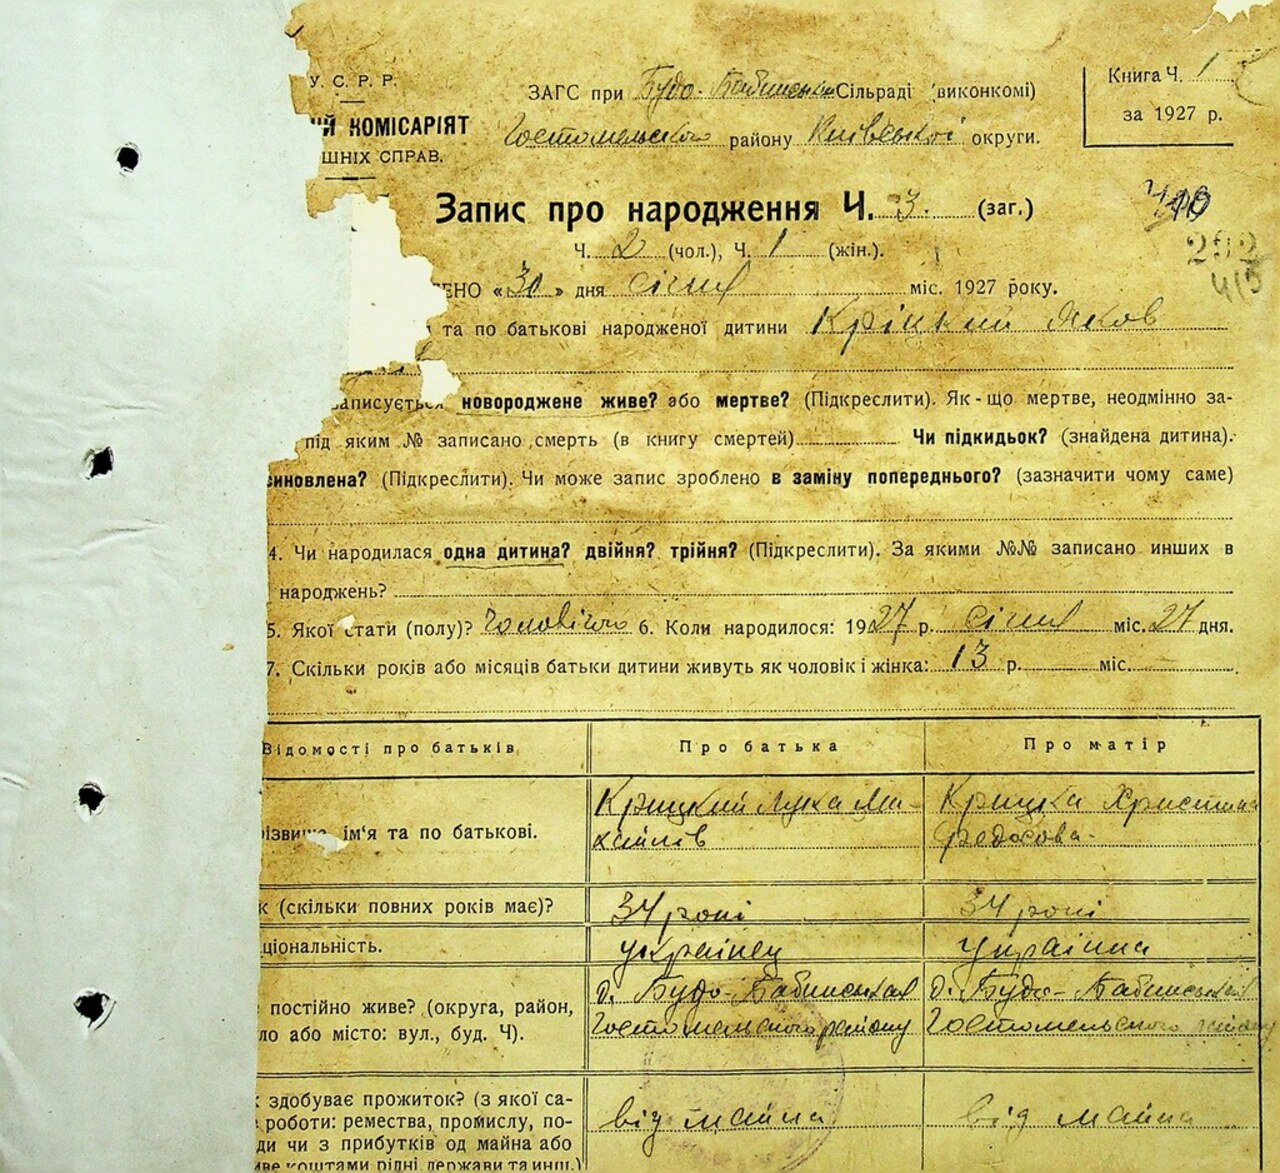 У. С. Р. Р.
ИЙ КОМІСАРІЯТ
ШНІХ СПРАВ.
ЗАГС при Будо-Бабинській Сільраді (виконкомі)
Гостомельского району Київської округи.
Книга Ч. 1
за 1927 р.
Запис про народження Ч. 3. (заг.)
Ч. 2 (чол.), Ч. 1 (жін.).
232
415
ЕНО «30» дня січня міс. 1927 року.
та по батькові народженої дитини Кріцкий Яков
записується новороджене живе? або мертве? (Підкреслити). Як-що мертве, неодмінно за-
під яким № записано смерть (в книгу смертей) Чи підкидьок? (знайдена дитина).
синовлена? (Підкреслити). Чи може запис зроблено в заміну попереднього? (зазначити чому саме)
4. Чи народилася одна дитина? двійня? трійня? (Підкреслити). За якими №№ записано инших в
народжень?
5. Якої стати (полу)? Чоловічого 6. Коли народилося: 1927 р. січня міс. 27 дня.
7. Скільки років або місяців батьки дитини живуть як чоловік і жінка: 13 р. міс.
Відомості про батьків
Про батька
Про матір
різвище ім'я та по батькові.
Крицкий Лука Ми-
хайлів
Крицка Христина
Федосова-
к (скільки повних років має)?
34 roкі
34 рокі
ціональність.
українец
Українка
постійно живе? (округа, район,
ло або місто: вул., буд. Ч).
д. Будо-Бабинская
Гостомельского району
д. Будо-Бабинская
Гостомельского району
к здобуває прожиток? (з якої са-
роботи: ремества, промислу, по-
ди чи з прибутків од майна або
иве коштами рідні, держави та инш.)
від майна
від майна